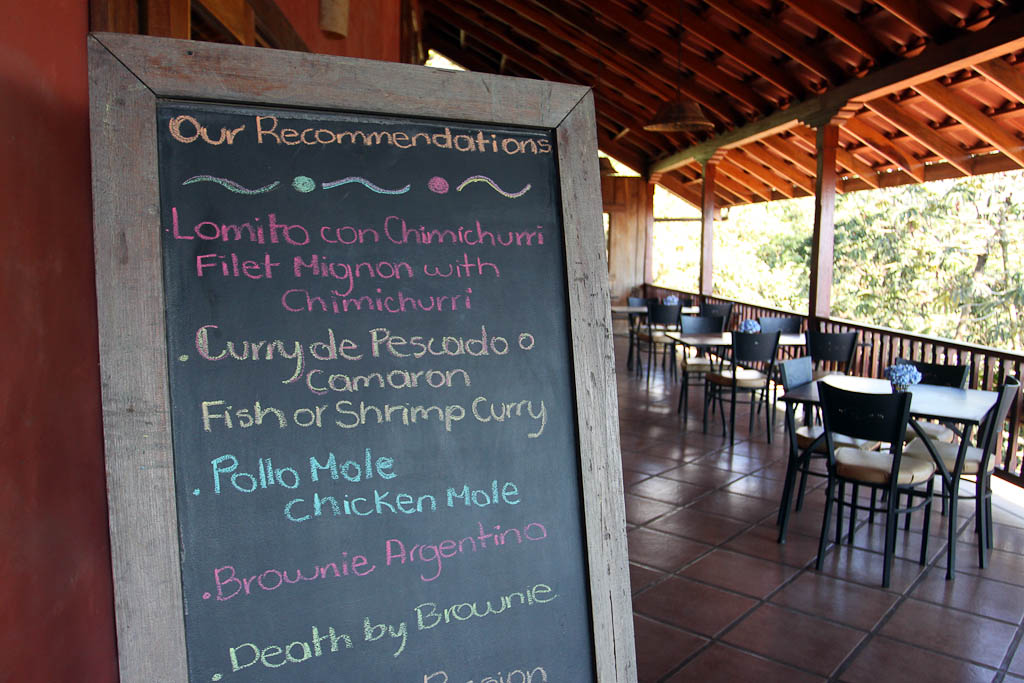 Our Recommendations
. Lomito con Chimichurri
Filet Mignon with
Chimichurri
. Curry de Pescado o
Camaron
Fish or Shrimp Curry
. Pollo Mole
Chicken Mole
. Brownie Argentino
. Death by Brownie